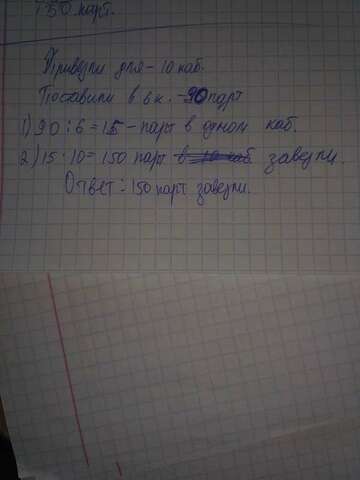 150 парт.
Привезли для - 10 каб.
Поставили в 6 к. - 90 парт
1) 90 : 6 = 15 - парт в одном каб.
2) 15 · 10 = 150 парт в 10 каб завезли.
Ответ: 150 парт завезли.